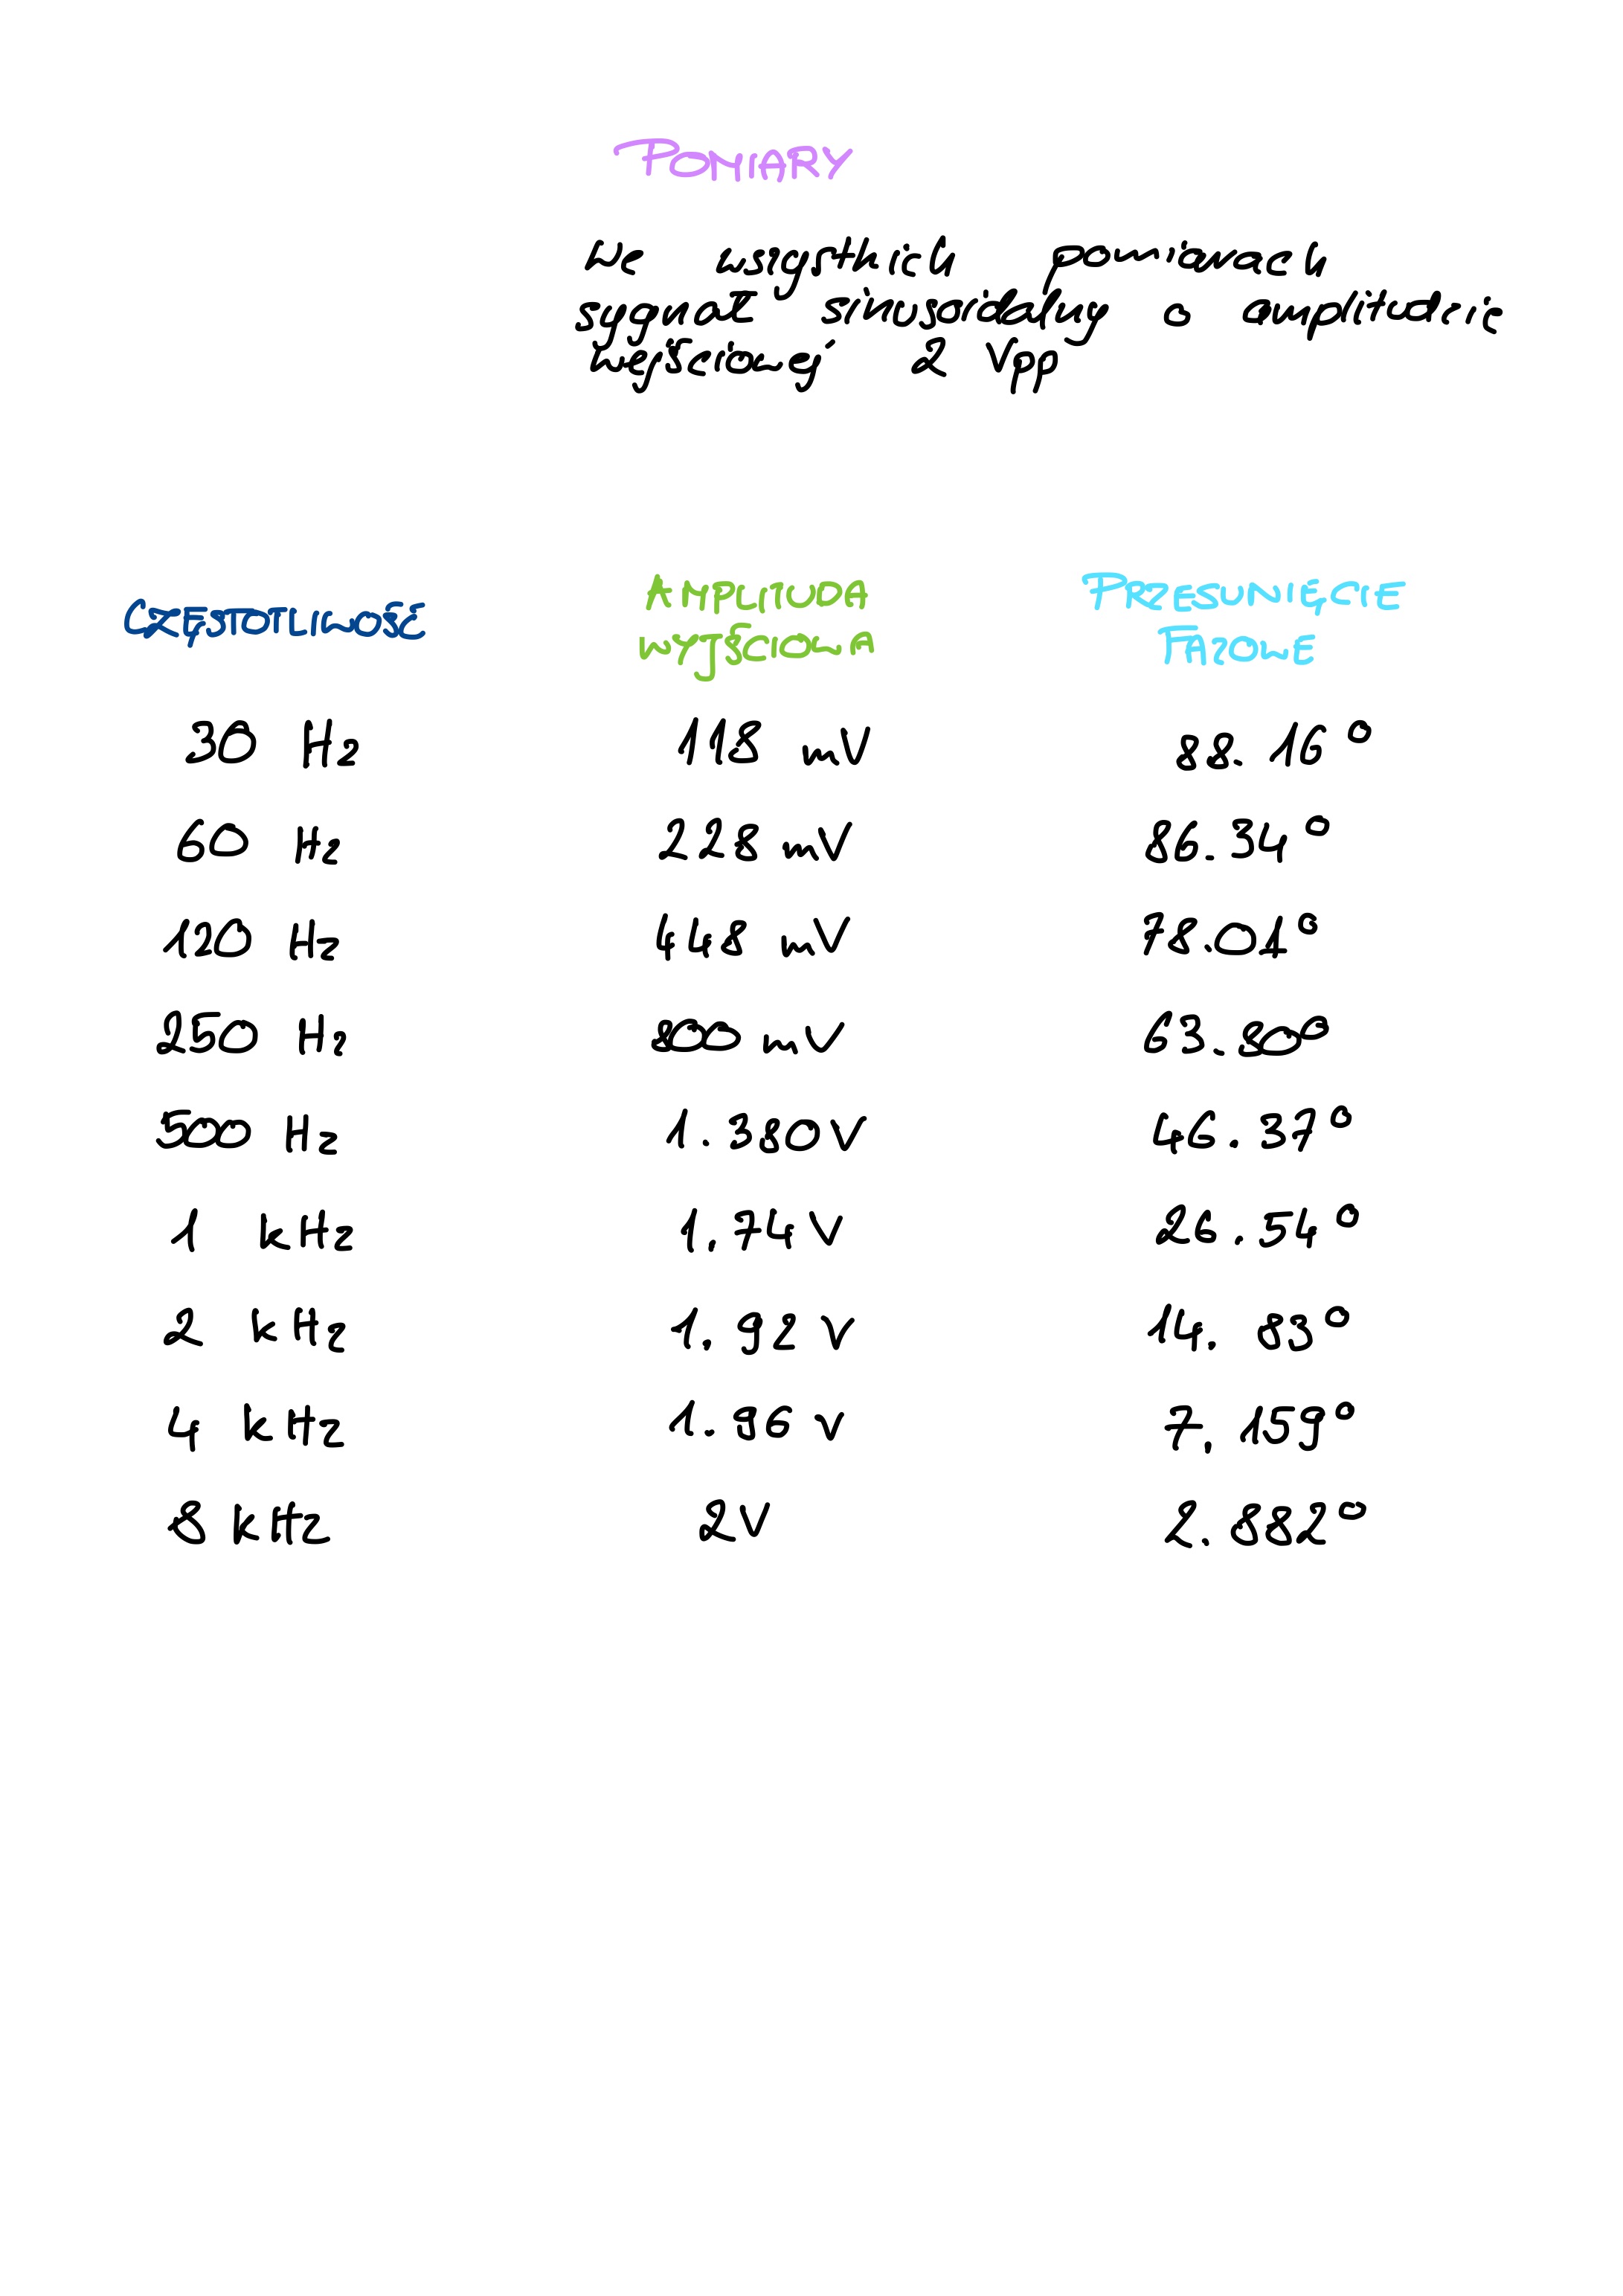 POMIARY
We wszystkich pomiarach
sygnał sinusoidalny o amplitudzie
wyjściowej 2 Vpp
CZĘSTOTLIWOŚĆ
AMPLITUDA
WYJŚCIOWA
PRZESUNIĘCIE
FAZOWE
30 Hz 118 mV 88.16°
60 Hz 228 mV 86.34°
120 Hz 448 mV 78.01°
250 Hz 800 mV 63.80°
500 Hz 1.380V 46.37°
1 kHz 1.74V 26.54°
2 kHz 1.92 V 14.83°
4 kHz 1.96 V 7.159°
8 kHz 2V 2.882°